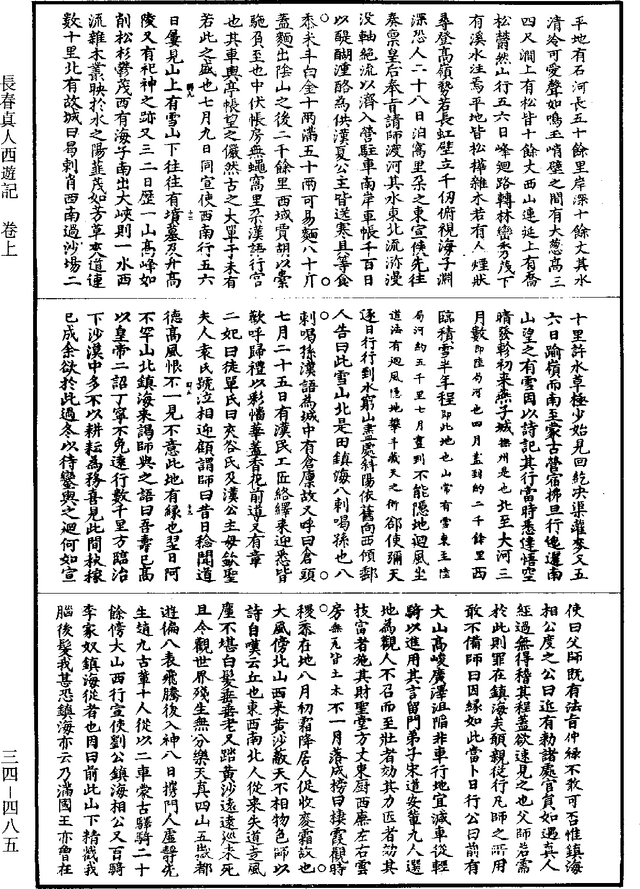 長春真人西遊記　卷上
三四—四八五
平地有石河長五十餘里岸深十餘丈其水
清泠可愛聲如鳴玉峭壁之間有大葱高三
四尺澗上有松皆十餘丈西山連延上有喬
松欝然山行五六日峰迴路轉林巒秀茂下
有溪水注焉平地皆松樺雜木若有人煙狀
尋登高嶺勢若長虹壁立千仞俯視海子淵
深恐人二十八日泊窩里朶之東宣使先往
奏禀皇后奉旨請師渡河其水東北流瀰漫
沒軸絕流以濟入營駐車南岸車帳千百日
以醍醐湩酪為供漢夏公主皆送寒具等食
黍米斗白金十兩滿五十兩可易麵八十斤
蓋麵出陰山之後二千餘里西域賈胡以橐
駞負至也中伏帳房無蠅窩里朶漢語行宮
也其車輿亭帳望之儼然古之大單于未有
若此之盛也七月九日同宣使西南行五六
日屢見山上有雪山下往往有墳墓及升高
陵又有祀神之跡又三二日歷一山高峰如
削松杉欝茂西有海子南出大峽則一水西
流雜木叢映於水之陽韮茂如芳草夾道連
數十里北有故城曰曷剌肖西南過沙場二
十里許水草極少始見回紇决渠灌麥又五
六日踰嶺而南至蒙古營宿拂旦行迤邐南
山望之有雪因以詩記其行當時悉達悟空
晴發軫初來燕子城撫州是也北至大河三
月數即陸局河也四月盡到約二千餘里西
臨積雪半年程即此地也山常有雪東至陸
局河約五千里七月盡到不能隱地迴風坐
道法有迴風隱地攀斗藏天之術卻使彌天
逐日行行到水窮山盡處斜陽依舊向西傾郵
人告曰此雪山北是田鎮海八剌喝孫也八
剌喝孫漢語為城中有倉廩故又呼曰倉頭
七月二十五日有漢民工匠絡繹來迎悉皆
歡呼歸禮以彩幡華蓋香花前導又有章
二妃曰徒單氏曰夾谷氏及漢公主母欽聖
夫人袁氏號泣相迎顧謂師曰昔日稔聞道
德高風恨不一見不意此地有緣也翌日阿
不罕山北鎮海來謁師與之語曰吾壽已高
以皇帝二詔丁寧不免遠行數千里方臨治
下沙漠中多不以耕耘為務喜見此間秋稼
已成余欲於此過冬以待鑾輿之迴何如宣
使曰父師既有法旨仲祿不敢可否惟鎮海
相公度之公曰近有勑諸處官員如遇真人
經過無得稽其程蓋欲速見之也父師若需
於此則罪在鎮海矣願親從行凡師之所用
敢不備師曰因緣如此當卜日行公曰前有
大山高峻廣澤沮陷非車行地宜減車從輕
騎以進用其言留門弟子宋道安輩九人選
地為觀人不召而至壯者効其力匠者効其
技富者施其財聖堂方丈東厨西廡左右雲
房無瓦皆土木不一月落成榜曰棲霞觀時
稷黍在地八月初霜降居人促收麥霜故也
大風傍北山西來黃沙蔽天不相物色師以
詩自嘆云丘也東西南北人從來失道走風
塵不堪白髮垂垂老又踏黃沙遠遠巡未死
且令觀世界殘生無分樂天真四山五嶽都
遊徧八表飛騰後入神八日攜門人虛靜先
生趙九古輩十人從以二車蒙古驛騎二十
餘傍大山西行宣使劉公鎮海相公又百騎
李家奴鎮海從者也因曰前此山下精截我
腦後髮我甚恐鎮海亦云乃滿國王亦曾在